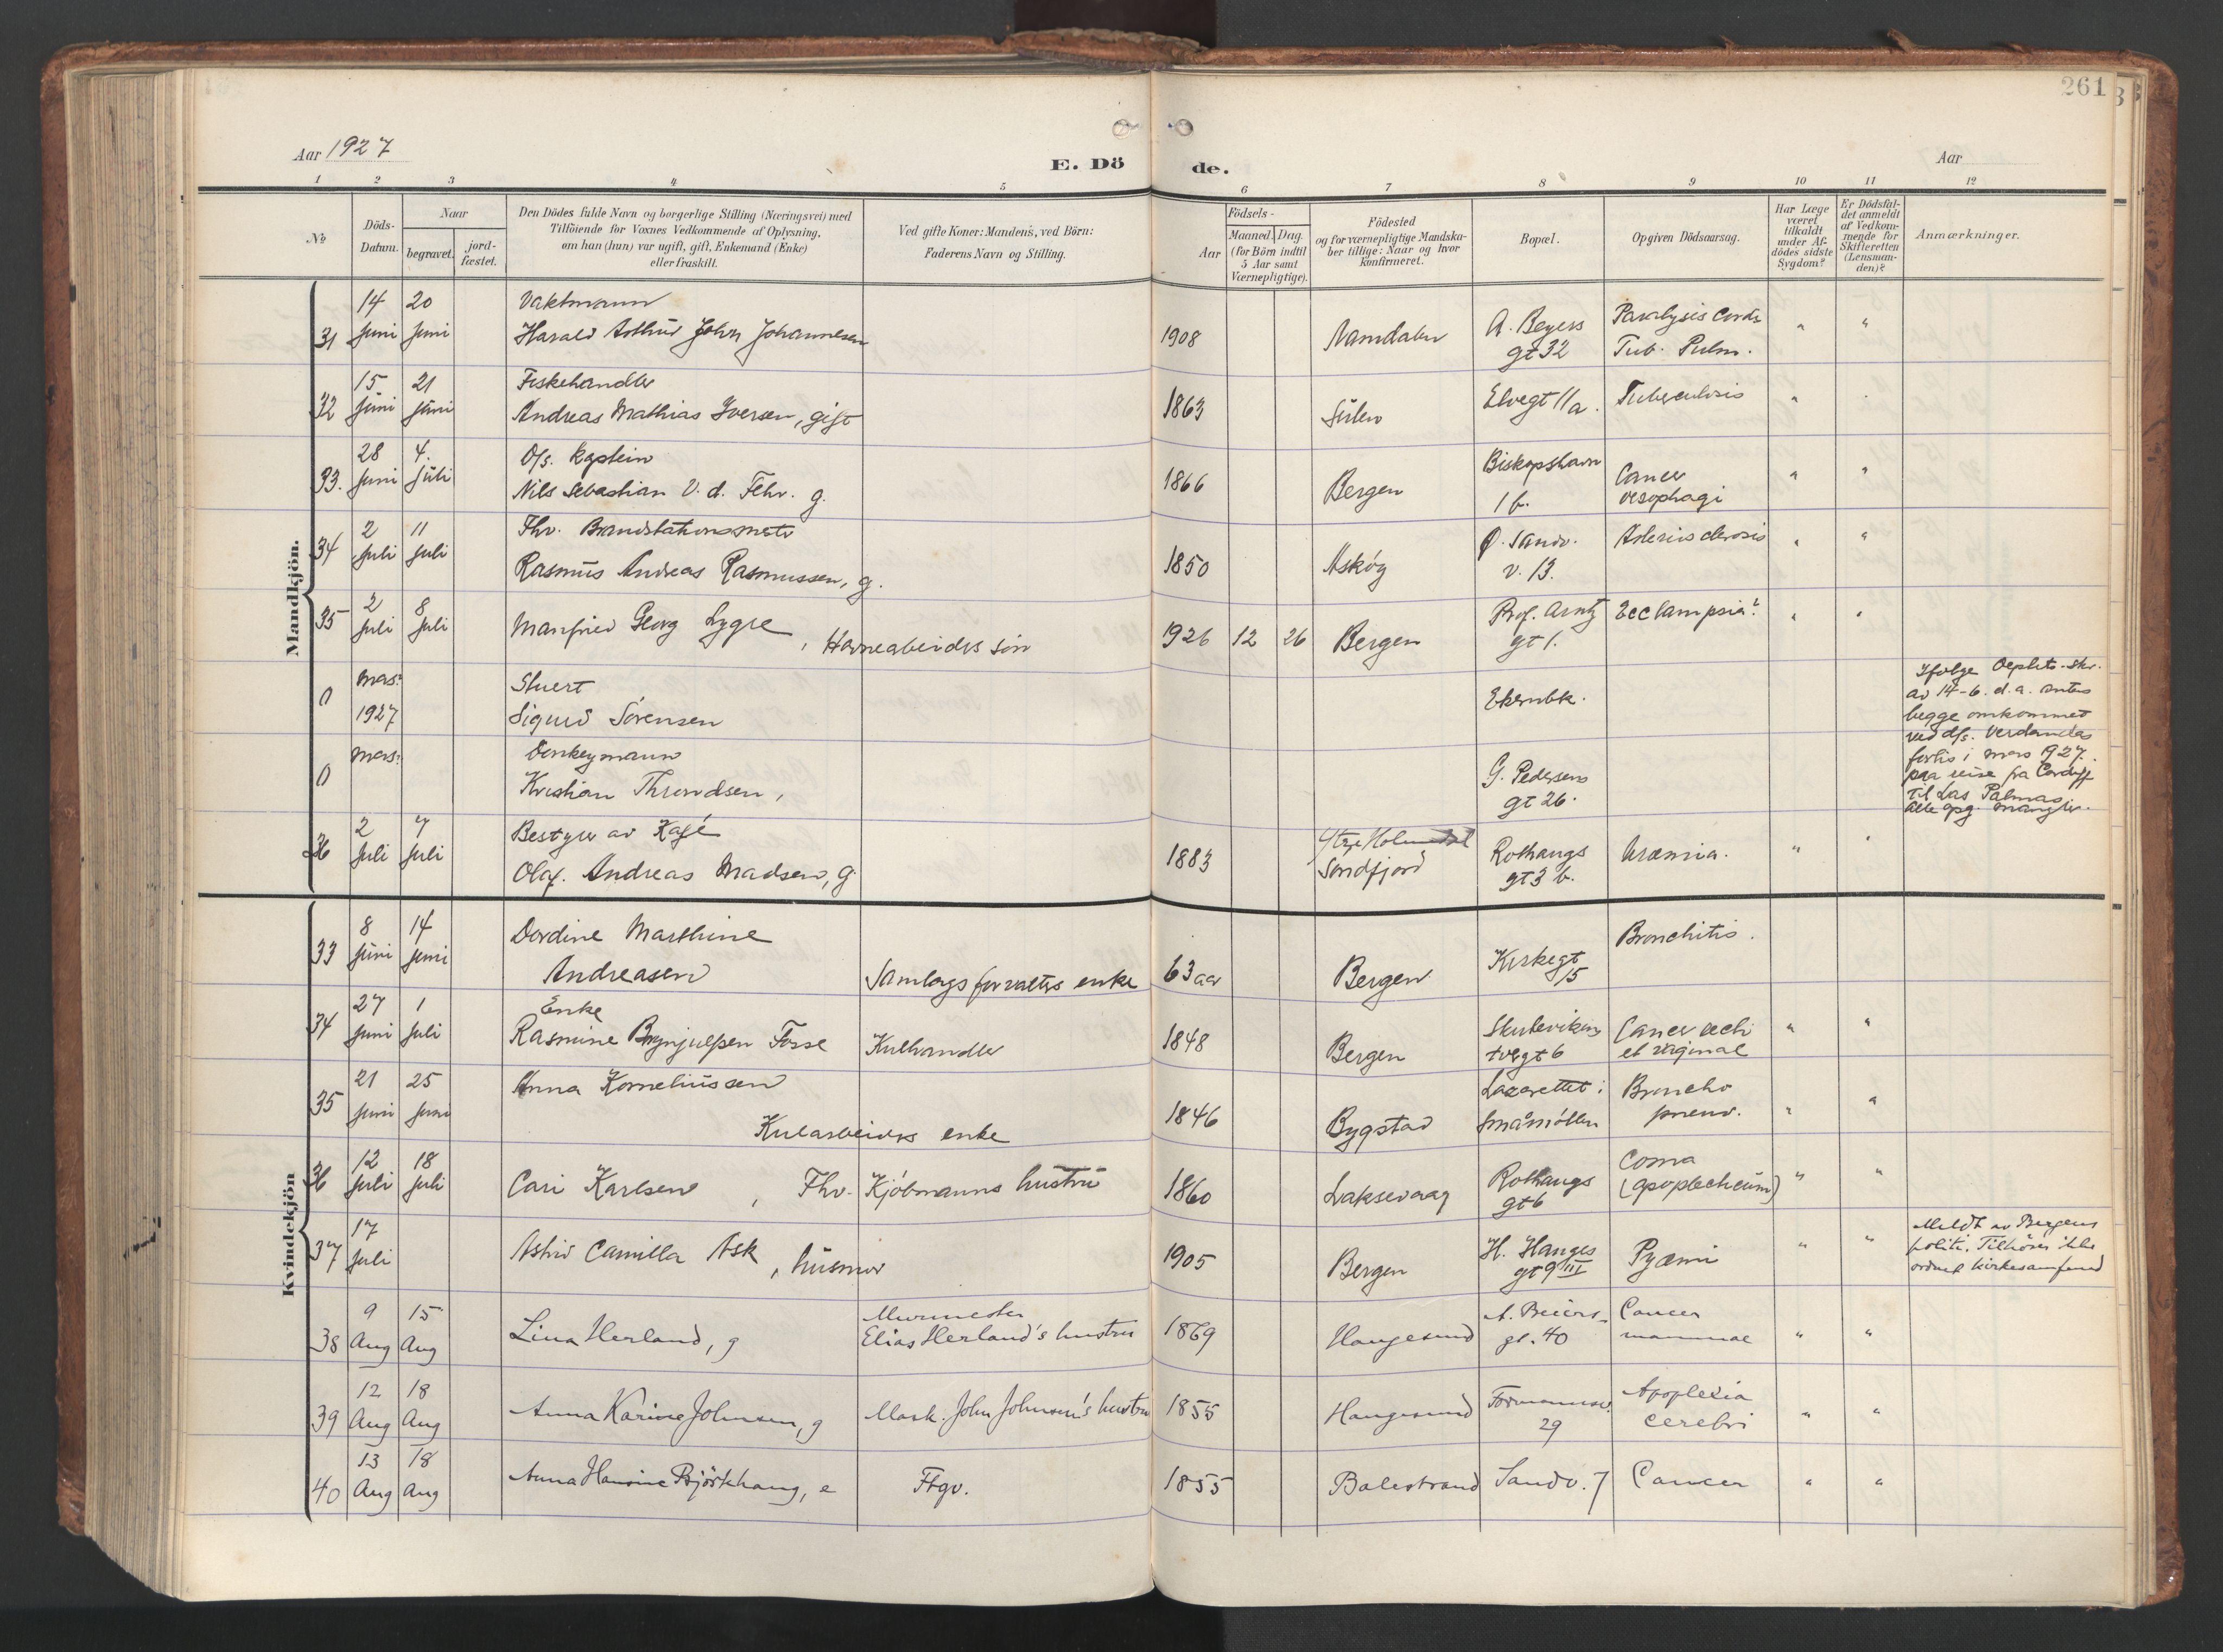 261
Aar 1927
E. Dö de.
Aar
1 2 3 4 5 6 7 8 9 10 11 12
No
Döds-Datum.
Naar
begravet.
jord-fæstet.
Den Dödes fulde Navn og borgerlige Stilling (Næringsvei) med
Tilföiende for Voxnes Vedkommende af Oplysning,
om han (hun) var ugift, gift, Enkemand (Enke)
eller fraskilt.
Ved gifte Koner: Mandens, ved Börn:
Faderens Navn og Stilling.
Födsels-
Aar
Maaned. Dag.
(for Börn indtil
5 Aar samt
Værnepligtige).
Födested
og for værnepligtige Mandska-
ber tillige: Naar og hvor
konfirmeret.
Bopæl.
Opgiven Dödsaarsag.
Har Læge
været
tilkaldt
under Af-
dödes sidste
Sygdom?
Er Dödsfal-
det anmeldt
af Vedkom-
mende for
Skifteretten
(Lensman-
den)?
Anmærkninger.
Mandkjön.
31 14 Juni 20 Juni
Vaktmann
Harald Arthur John Johannesen
1908 Namdalen
A. Beyers
gt 32
Paralysis Cordis
Tub. Pulm. " "
32 15 Juni 21 Juni
Fiskehandler
Andreas Mathias Iversen, gift
1863 Sulen
Elvegt 11a.
Tuberculosis "
33. 28 Juni 4. Juli
D/s. kaptein
Nils Sebastian V. d. Fehr. g.
1866 Bergen
Biskopshavn
1 b.
Cancer
oesophagi " "
34 2 Juli 11 Juli
Fhv. Brandstationsmstr
Rasmus Andreas Rasmussen, g.
1850 Askøy
Ø. Sandv.
v. 13.
Arteriosclerosis " "
35 2 Juli 8 Juli
Manfred Georg Lygre, Havnearbeiders sön
1926 12 26 Bergen
Prof. Arntz
gt 1.
Ecclampsia? " "
0 mars? 1927
Stuert
Sigurd Sörensen
Ekrenbk.
Ifølge
av 14-6. d.a. antas
begge omkommet
ved d/s. Verdandes
forlis i mars 1927.
paa reise fra Cardiff
til Las Palmas.
Alle opg. mangler.
0 mars?
Donkeymann
Kristian Throndsen,
G. Pedersens
gt 26.
36 2 Juli 7 Juli
Bestyrer av Kafé
Olaf. Andreas Madsen, g.
1883
Söndfjord
Rothaugs
gt 3 b.
Uræmia. " "
Kvindekjön
33 8 Juni 14 Juni
Dordine Marthine
Andreasen
Samlags forvalters enke
63 aar Bergen
Kirkegt
15
Bronchitis.
34 27 Juni 1 Juli
Enke
Rasmine Brynjulfsen Fosse
Kulhandler
1848 Bergen
Skuteviks
tvergt 6
Cancer recti
et vaginae " "
35 21 Juni 25 Juni
Anna Korneliussen
Kularbeiders enke
1846 Bygstad
Lazarettet i
Småmöllen
Broncho
pneu. " "
36 12 Juli 18 Juli
Cari Karlsen, Fhv. Kjöbmanns hustru
1860 Laksevaag
Rothaugs
gt 6
Coma
(apoplecticum) " "
37 17 Juli
Astrid Camilla Ask, husmor
1905 Bergen
H. Hauges
gt 9 III
Pyæmi " "
Meldt av Bergens
politi. Tilhörer ikke
ordnet kirkesamfund
38 9 Aug 15 Aug
Lina Herland, g
Murmester
Elias Herland's hustru
1869 Haugesund
A. Beiers-
gt. 40
Cancer
mammae " "
39 12 Aug 18 Aug
Anna Karine Johnsen, g
Mask. John Johnsen's hustru
1855 Haugesund
Formannsv.
29
Apoplexia
cerebri " "
40 13 Aug 18 Aug
Anna Hansine Björkhaug, e
Ftgv.
1855 Balestrand
Sandv. 7
Cancer " "